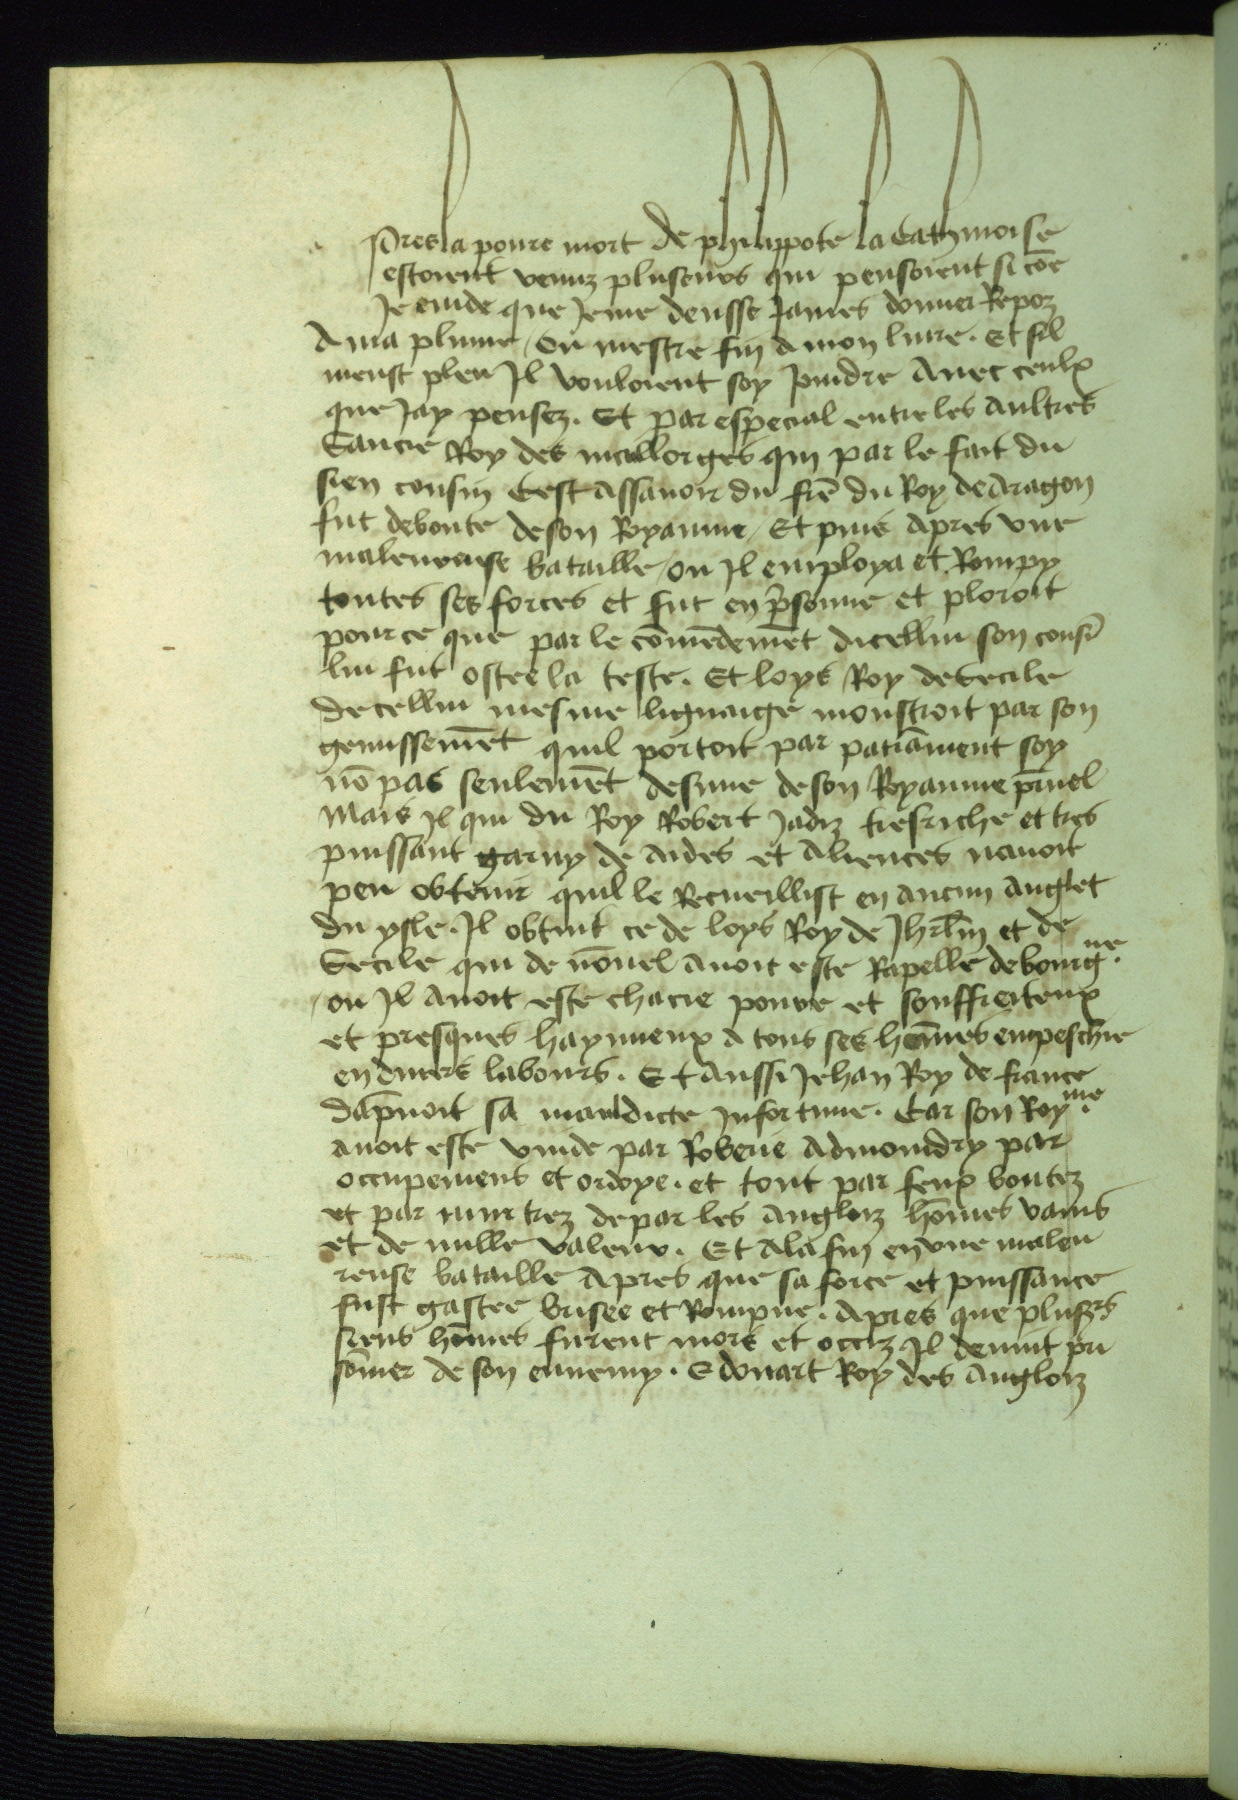 Pres la poure mort de philippote la Cathinoise
estoient venuz pluseurs qui pensoient si cōe
Je cuide que Je me deusse James donner Repoz
A ma plume / Ou mestre fin a mon livre . Et sil
meust pleu Il vouloient soy Joindre Avec ceulx
que Jay pensez . Et par especial entre les Aultres
Sancie Roy des mallorges qui par le fait du
sien cousin Cest Assavoir du frē du Roy de Aragon
fut deboute de son Royaume / Et puis Apres vne
maleureuse bataille / ou Il employa et Rompy
toutes ses forces et fut en p̄sonne et ploroit
pour ce que par le cōmēdemēt dicellui son cousī
lui fut ostee la teste . Et loys Roy de Secile
De cellui mesme lignaige monstroit par son
gemissemēt quil portoit par patiāment soy
nō pas seulemēt desmue de son Royaume p̄nuel
Mais Il qui du Roy Robert Jadiz tresriche et tres
puissant garny de Aides et Aliences navoit
peu obtenir quil le Recueillist en Aucun Anglet
du ysle . Il obtint ce de loys Roy de Jhrlm̄ et de
Secile qui de nōuel avoit este Rapelle de bourg.ne
/ ou Il Avoit este chacie povre et souffreiteux
et presques haynneux a tous ses hōmes empeschie
en divers labours . Et Aussi Jehan Roy de france
dāpnoit sa mauldicte Infortune . Car son Roy.me
avoit este vuide par Roberie Admoindry par
occupemens et ordoye . et tout par feux boutez
et par murtrez de par les Angloiz hōmes vains
et de nulle valeur . Et A la fin en vne maleu
reuse bataille Apres que sa force et puissance
fust gastee brisee et Rompue . Apres que plusrs
siens hōmes furent mors et occiz Il devint pri
sōnier de son ennemy . Edouart Roy des Angloiz